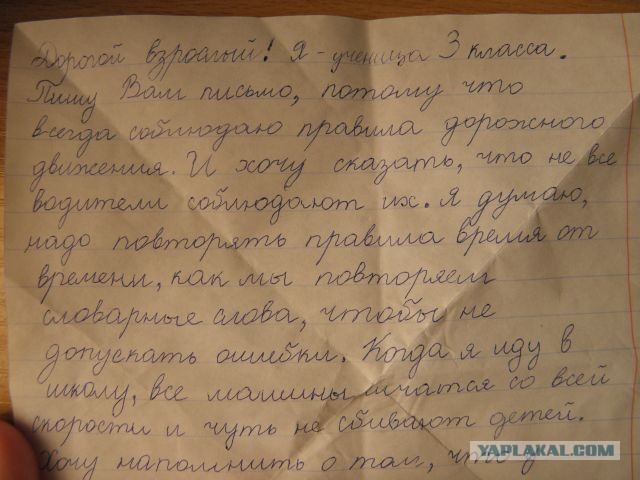 Дорогой взрослый! Я - ученица 3 класса.
Пишу Вам письмо, потому что
всегда соблюдаю правила дорожного
движения. И хочу сказать, что не все
водители соблюдают их. Я думаю,
надо повторять правила время от
времени, как мы повторяем
словарные слова, чтобы не
допускать ошибки. Когда я иду в
школу, все машины мчатся со всей
скорости и чуть не сбивают детей.
Хочу напомнить о том, что у
YAPLAKAL.COM